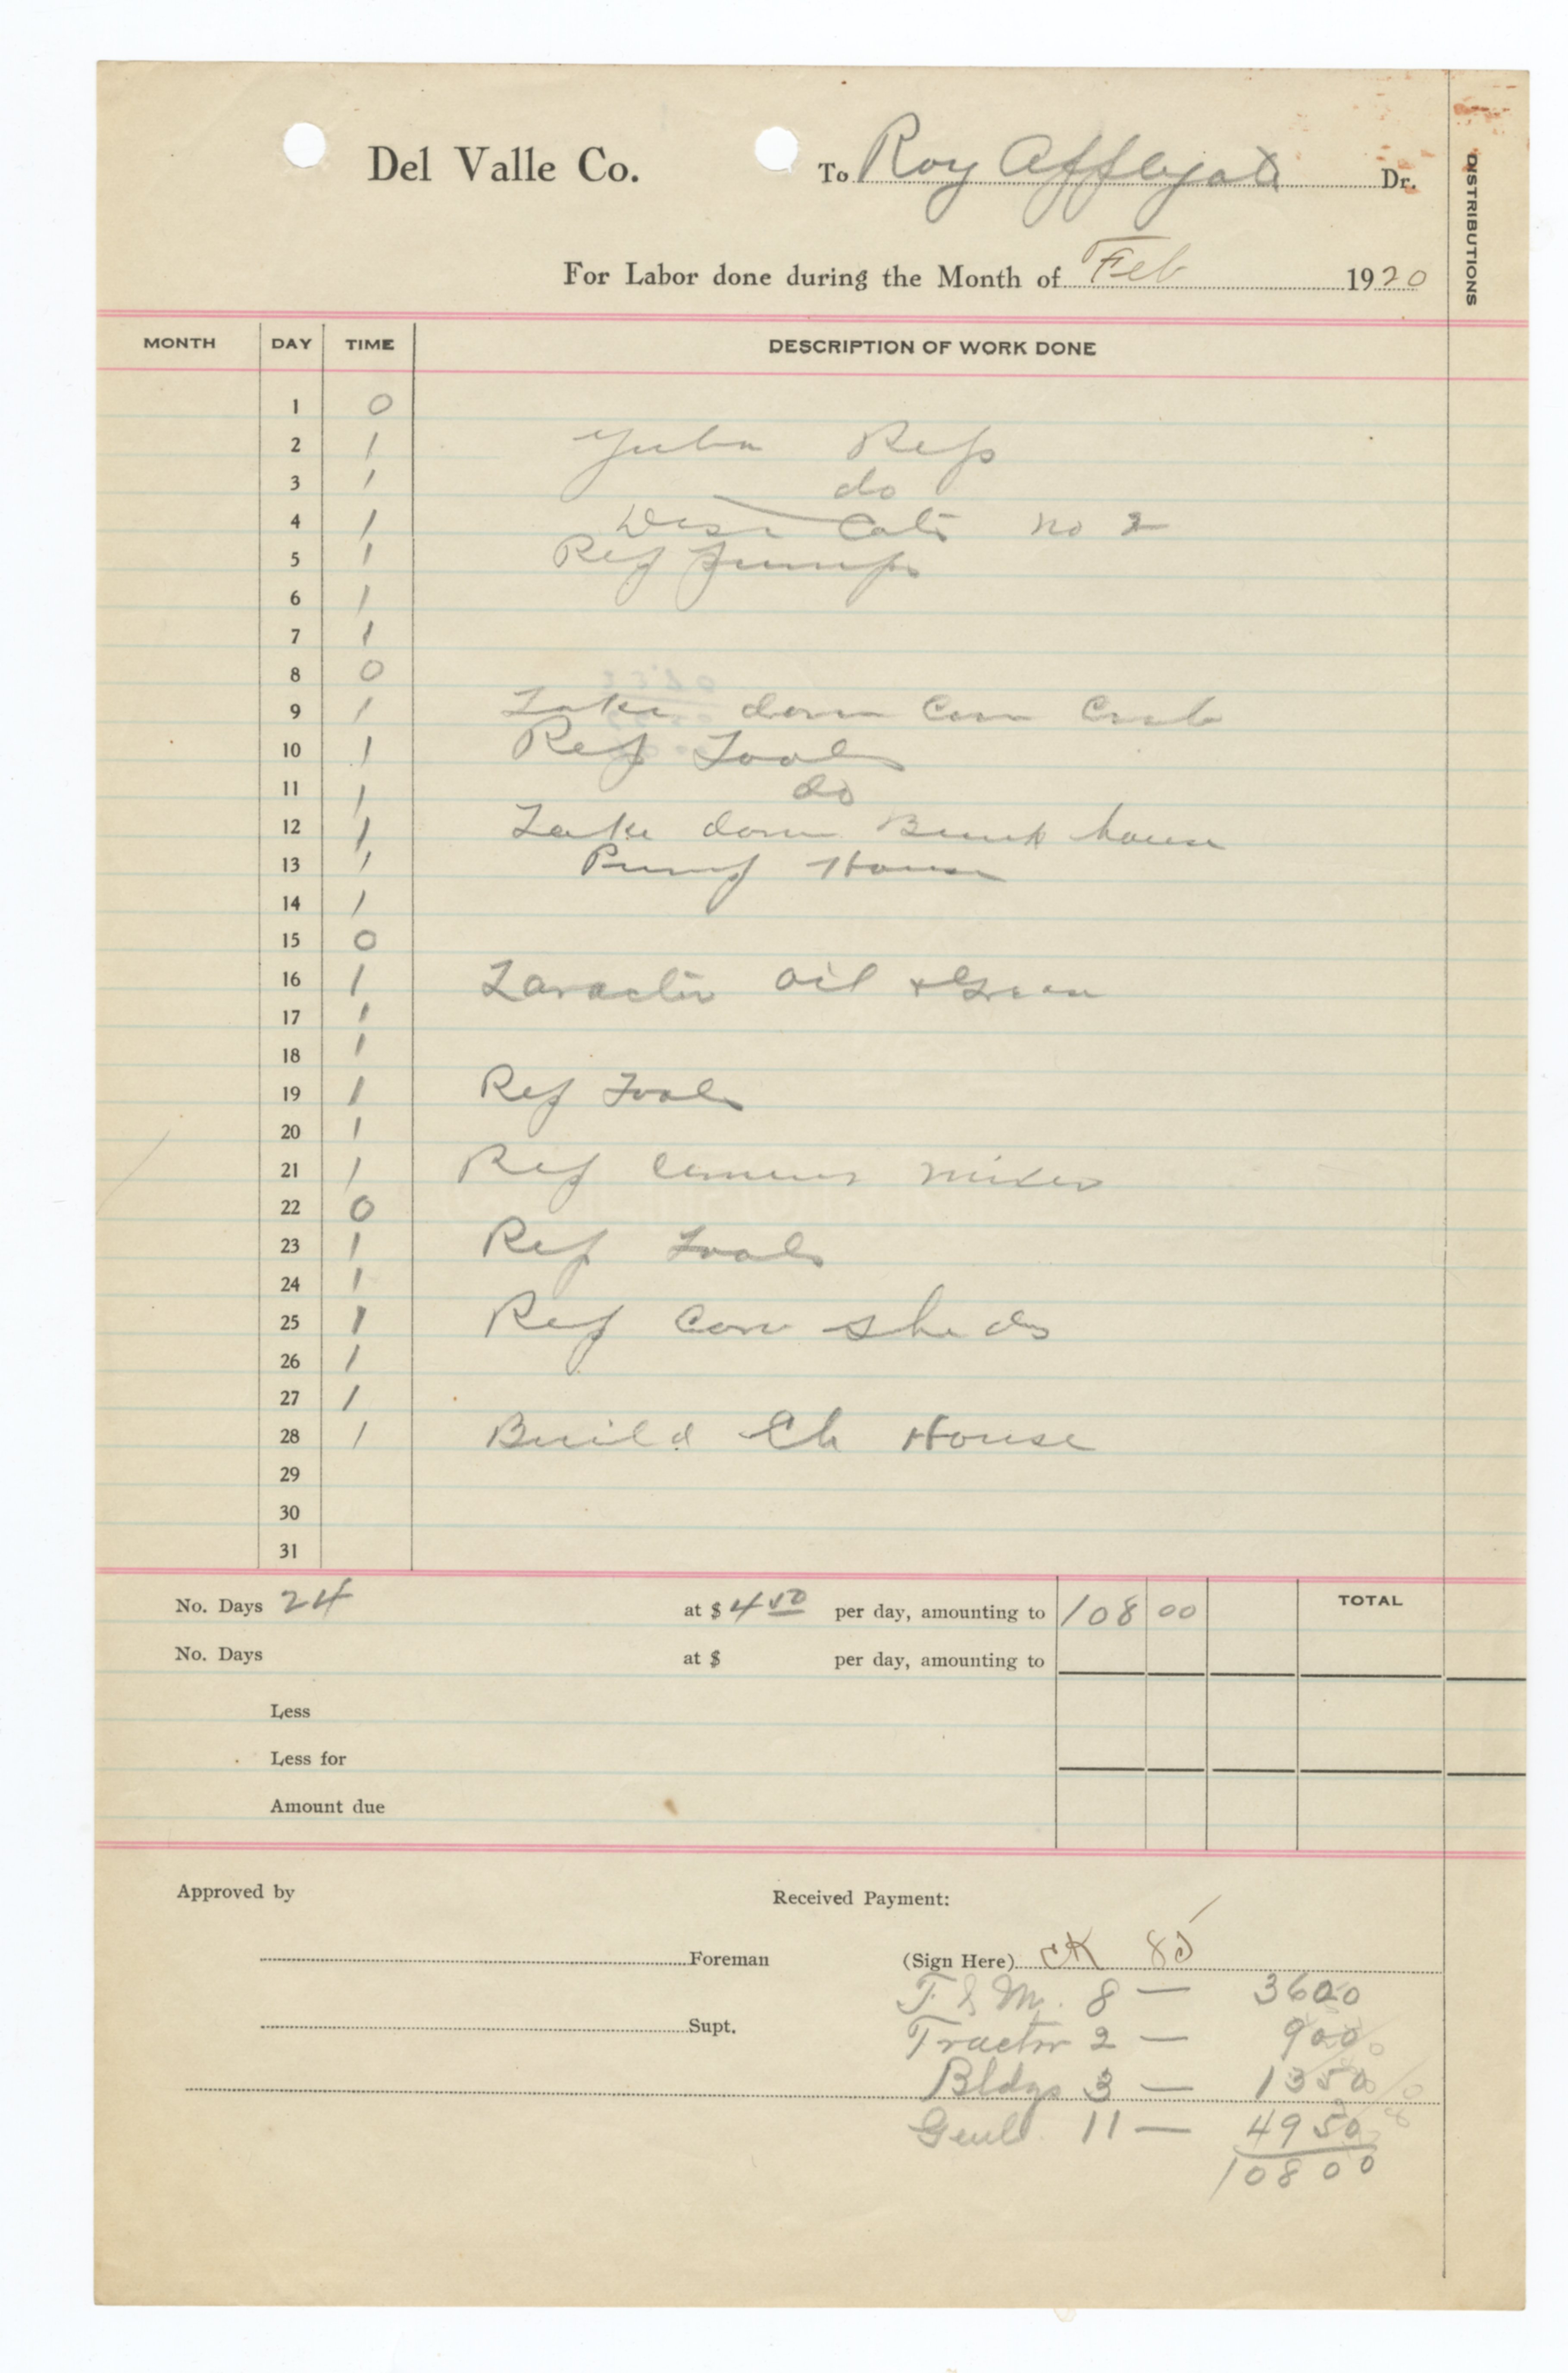 Del Valle Co. To Roy Afflegate Dr.
DISTRIBUTIONS
For Labor done during the Month of Feb 1920
MONTH DAY TIME DESCRIPTION OF WORK DONE
1 0
2 1 Yuba Rep
3 1 do
4 1 Cat no 2
5 1 Rep Pump
6 1
7 1
8 0
9 1 Take down Corn Crib
10 1 Rep Tools
11 1 do
12 1 Take down Bunk house
13 1 Pump House
14 1
15 0
16 1 Taractor oil + Greas
17 1
18 1
19 1 Rep Tools
20 1
21 1 Rep Cement mixer
22 0
23 1 Rep Tools
24 1
25 1 Rep Cow sheds
26 1
27 1
28 1 Build Ch House
29
30
31
No. Days 24 at $ 4 50 per day, amounting to 108 00 TOTAL
No. Days at $ per day, amounting to
Less
Less for
Amount due
Approved by Received Payment:
Foreman (Sign Here) CK 85
T & M. 8 — 3600
Supt. Tractor 2 — 900
Bldgs 3 — 1350
Genl 11 — 4950
10800